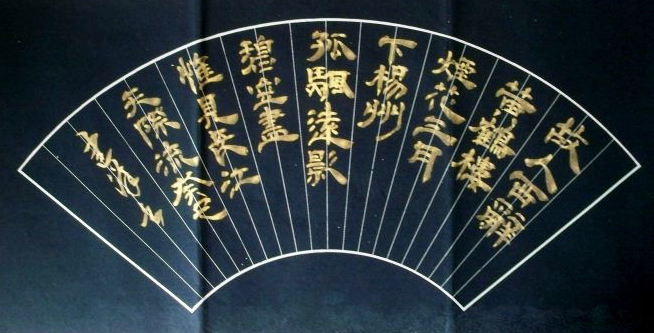 故人西辭
黃鶴樓
煙花三月
下楊州
孤颿遠影
碧空盡
惟見長江
天際流